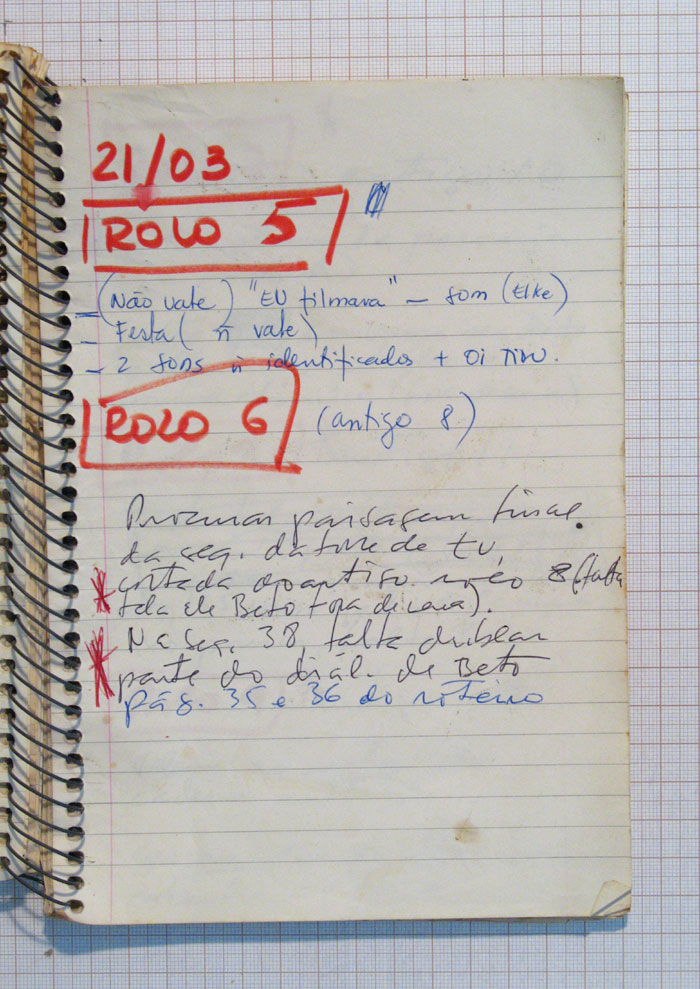 21/03
ROLO 5
— (Não vale) "EU filmava" — som (Elke)
— Festa (ñ vale)
— 2 sons ñ identificados + Oi
ROLO 6 (antigo 8)
Procurar paisagem final
da seq. da torre de TV,
cortada do antigo rolo 8 (falta
fala de Beto fora de
Na seq. 38, falta dublar
parte do diál. de Beto
pág. 35 e 36 do roteiro